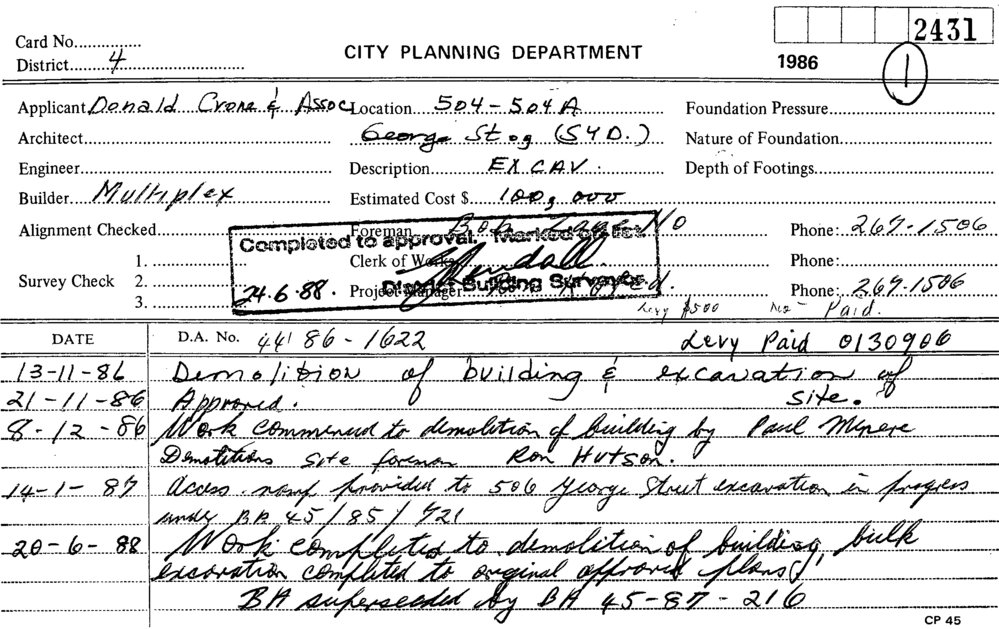 2431
Card No.
District 4
CITY PLANNING DEPARTMENT
1986
1
Applicant Donald Crone & Assoc
Location 504-504A
Foundation Pressure
Architect
George St (SYD.)
Nature of Foundation
Engineer
Description EXCAV.
Depth of Footings
Builder Multiplex
Estimated Cost $ 100,000
Alignment Checked
Foreman Bob
Phone: 267-1506
Completed to approval. Marked off list
Survey Check
1.
Clerk of Works
Phone:
2.
District Building Surveyor
24.6.88.
Project Manager
Phone: 267-1506
3.
Levy $500 Paid.
DATE
D.A. No. 44 86-1622
Levy Paid 0130906
13-11-86 Demolition of building & excavation of
site.
21-11-86 Approved.
8-12-86 Work commenced to demolition of building by Paul
Demolitions Site foreman Ron Hutson.
14-1-87 Access ramp provided to 506 George Street excavation in progress
under BA 45/85/721
20-6-88 Work completed to demolition of building, bulk
excavation completed to original approved plans
BA superseeded by BA 45-87-216
CP 45